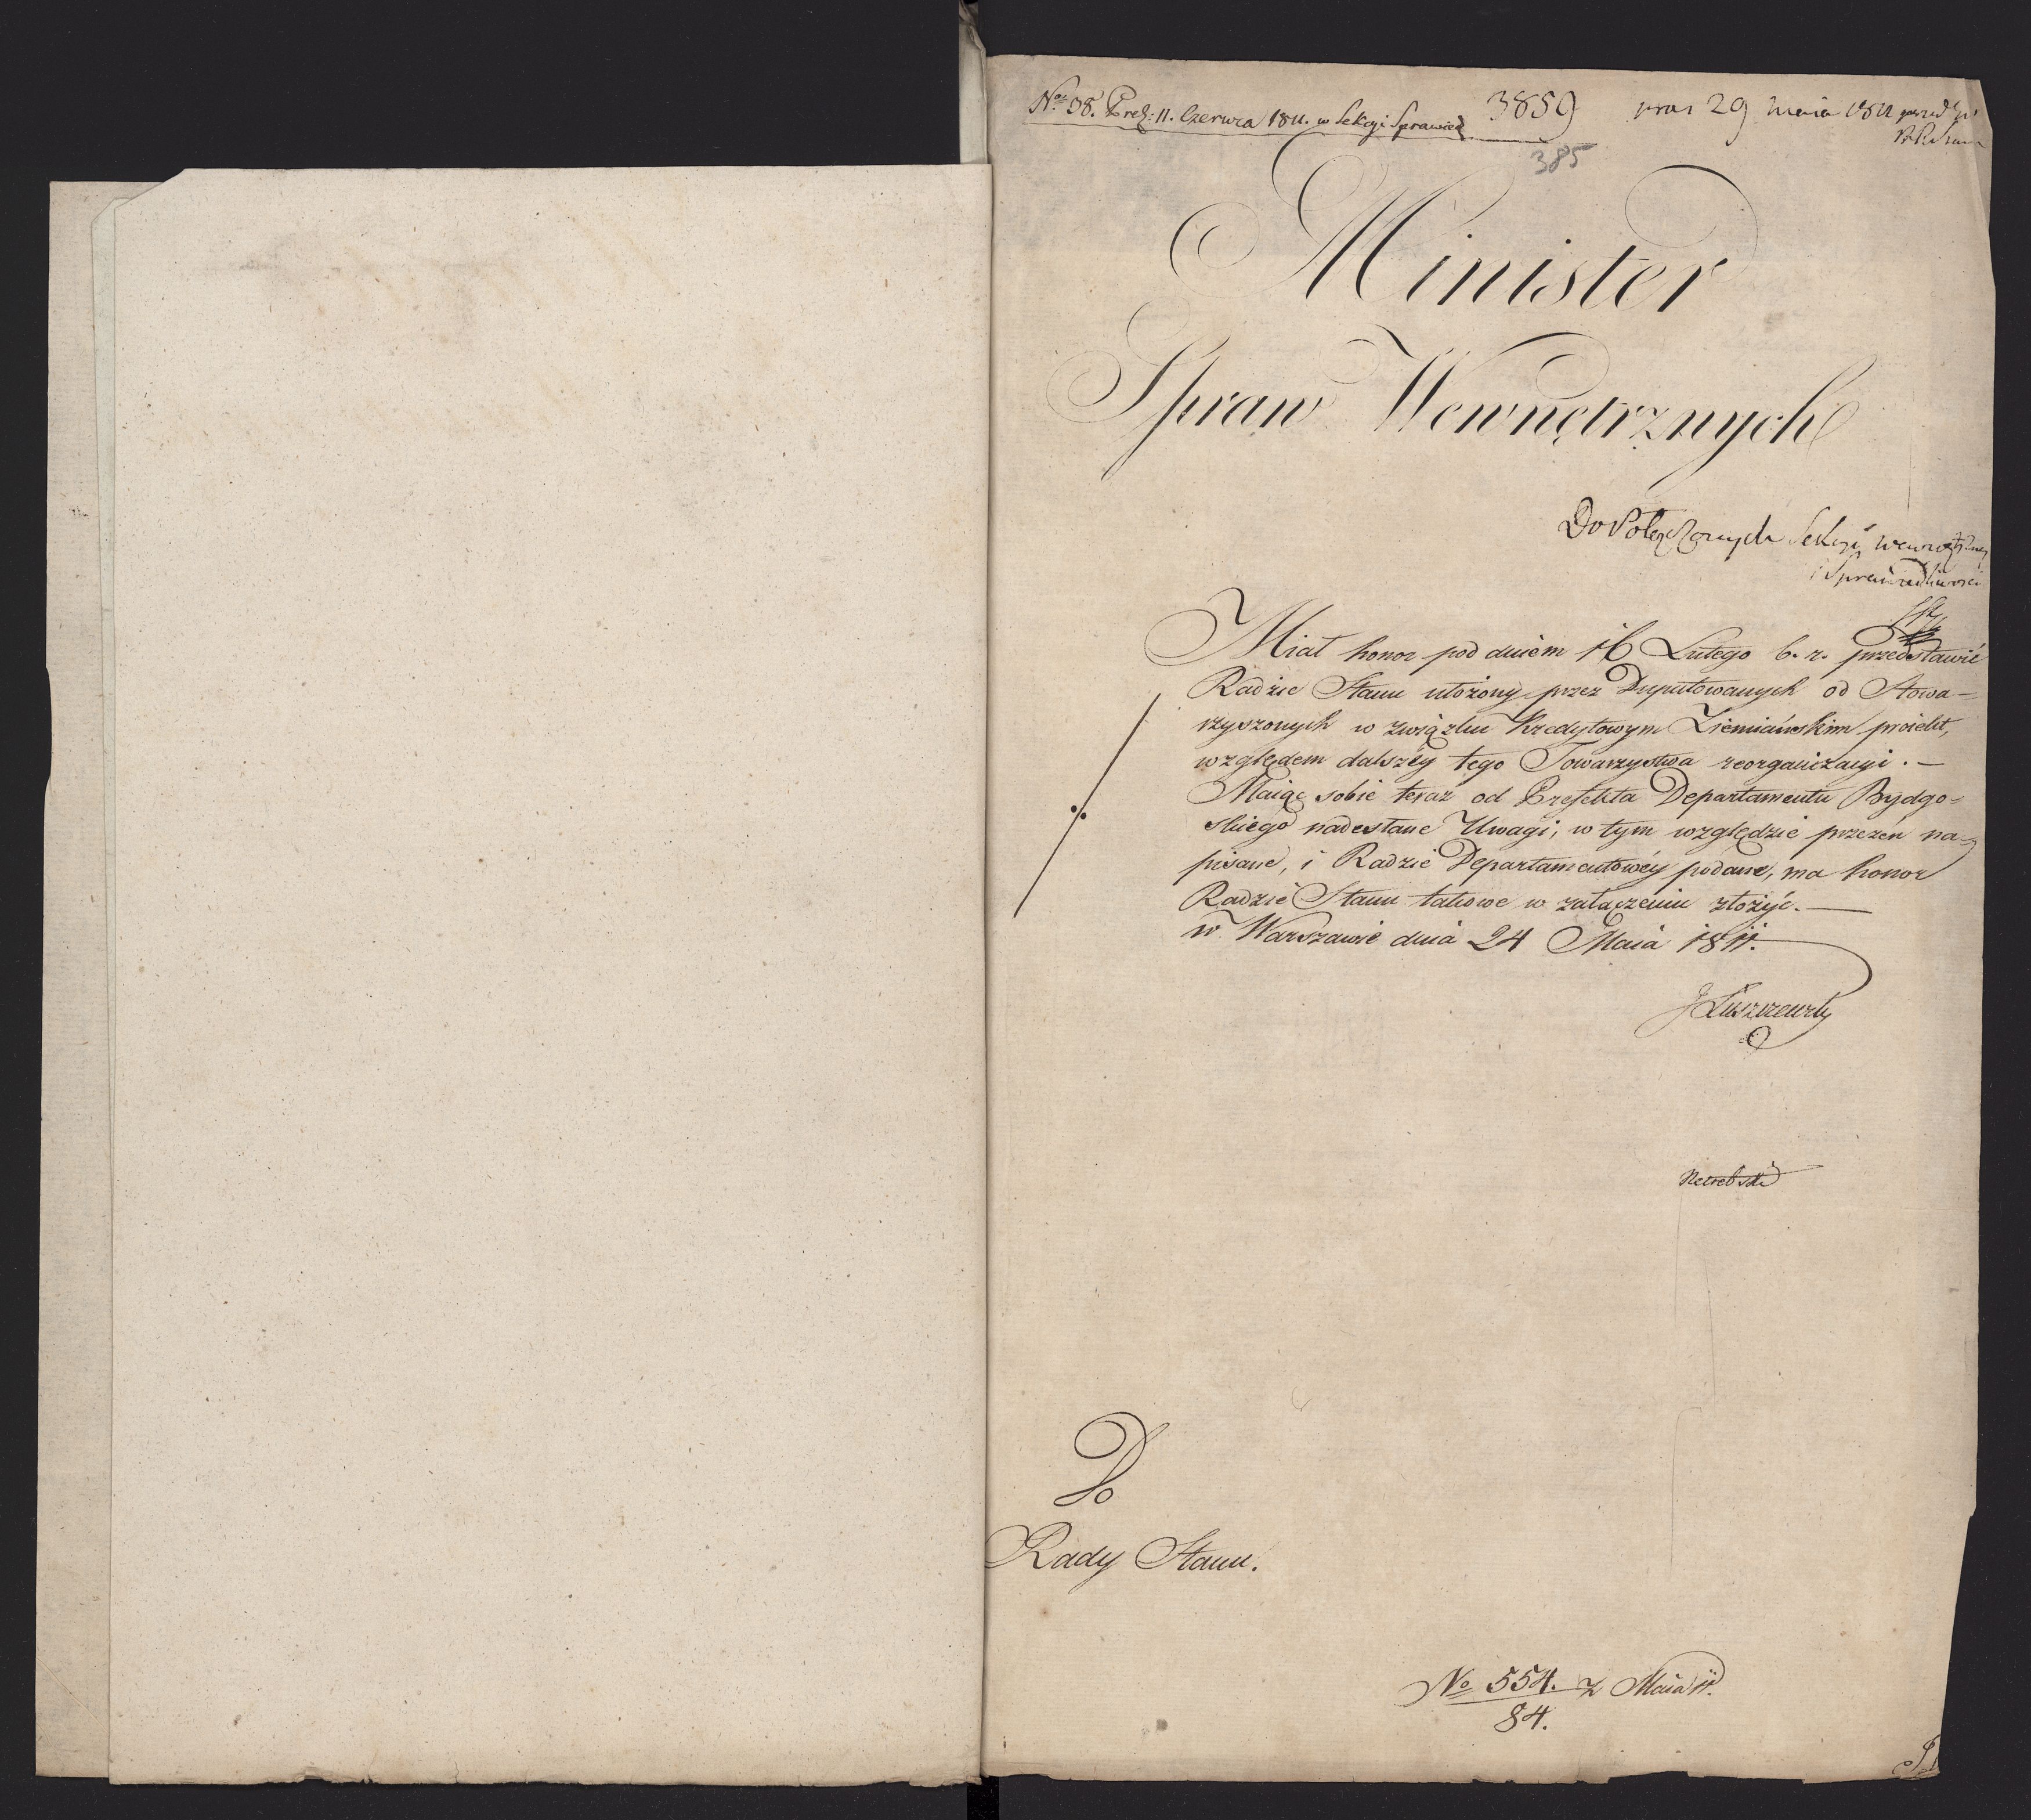 No 38. Prez: 11. Czerwca 1811. w Sekcyi Sprawied
3859
29 Maia 1811
385
Minister
Spraw Wewnętrznych
Do Połączonych Sekcyi wewnętrzney
i Sprawiedliwosci
Miał honor pod dniem 16 Lutego b. r. przedstawić
Radzie Stanu ułożony przez Deputowanych od Stowa-
rzyszonych w związku Kredytowym Ziemiańskim proiekt,
względem dalszéy tego Towarzystwa reorganizacyi. –
Maiąc sobie teraz od Prefekta Departamentu Bydgo-
skiego nadesłane Uwagi, w tym względzie przezeń na-
pisane, i Radzie Departamentowéy podane, ma honor
Radzie Stanu takowe w załączeniu złożyć. –
w Warszawie dnia 24 Maia 1811.
J Łuszczewsky
Netrebski
Do
Rady Stanu.
No 554. z Maia 11.
84.